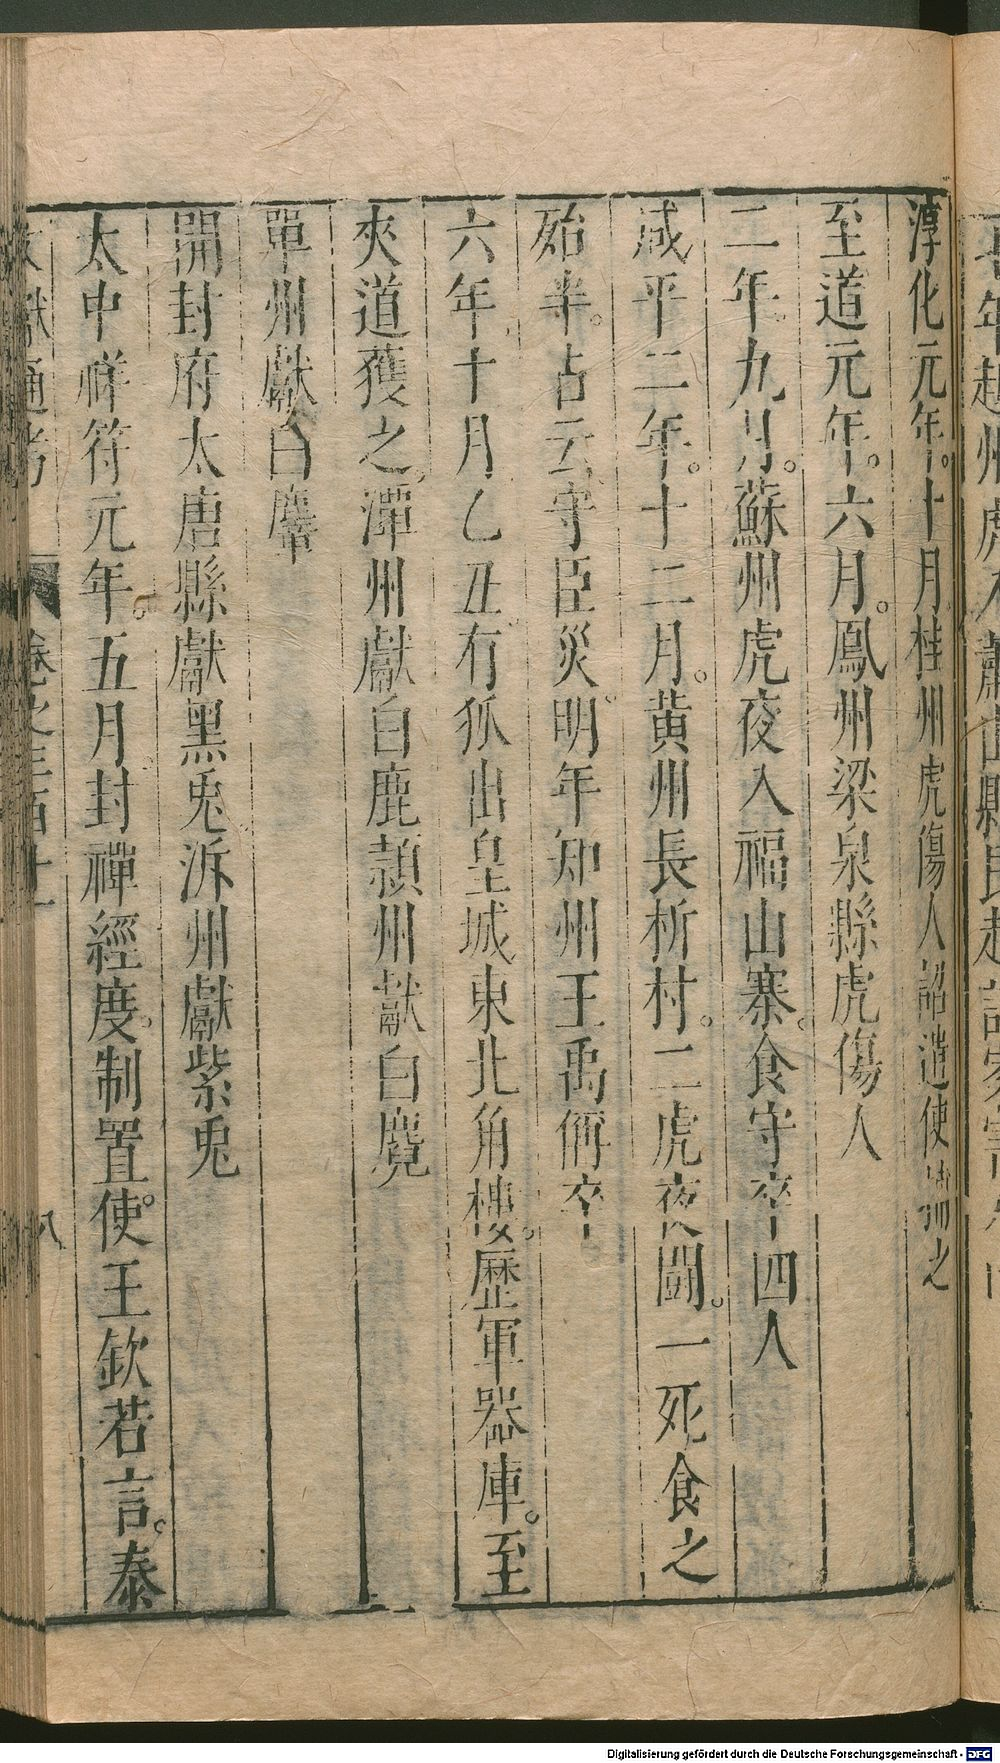 淳化元年。十月桂州虎傷人詔遣使捕之
至道元年。六月。鳳州梁泉縣虎傷人
二年。九月。蘇州虎夜入福山寨。食守卒四人
咸平二年。十二月。黃州長析村。二虎夜鬪。一死食之
殆半。占云守臣災。明年知州王禹偁卒
六年十月乙丑有狐出皇城東北角樓。歷軍器庫。至
夾道獲之。潭州獻白鹿潁州獻白麑
單州獻白麞
開封府太唐縣獻黑兎泝州獻紫兎
太中祥符元年。五月封禪經度。制置使。王欽若言。泰
文獻通考 卷之三百十一 八
Digitalisierung gefördert durch die Deutsche Forschungsgemeinschaft - DFG